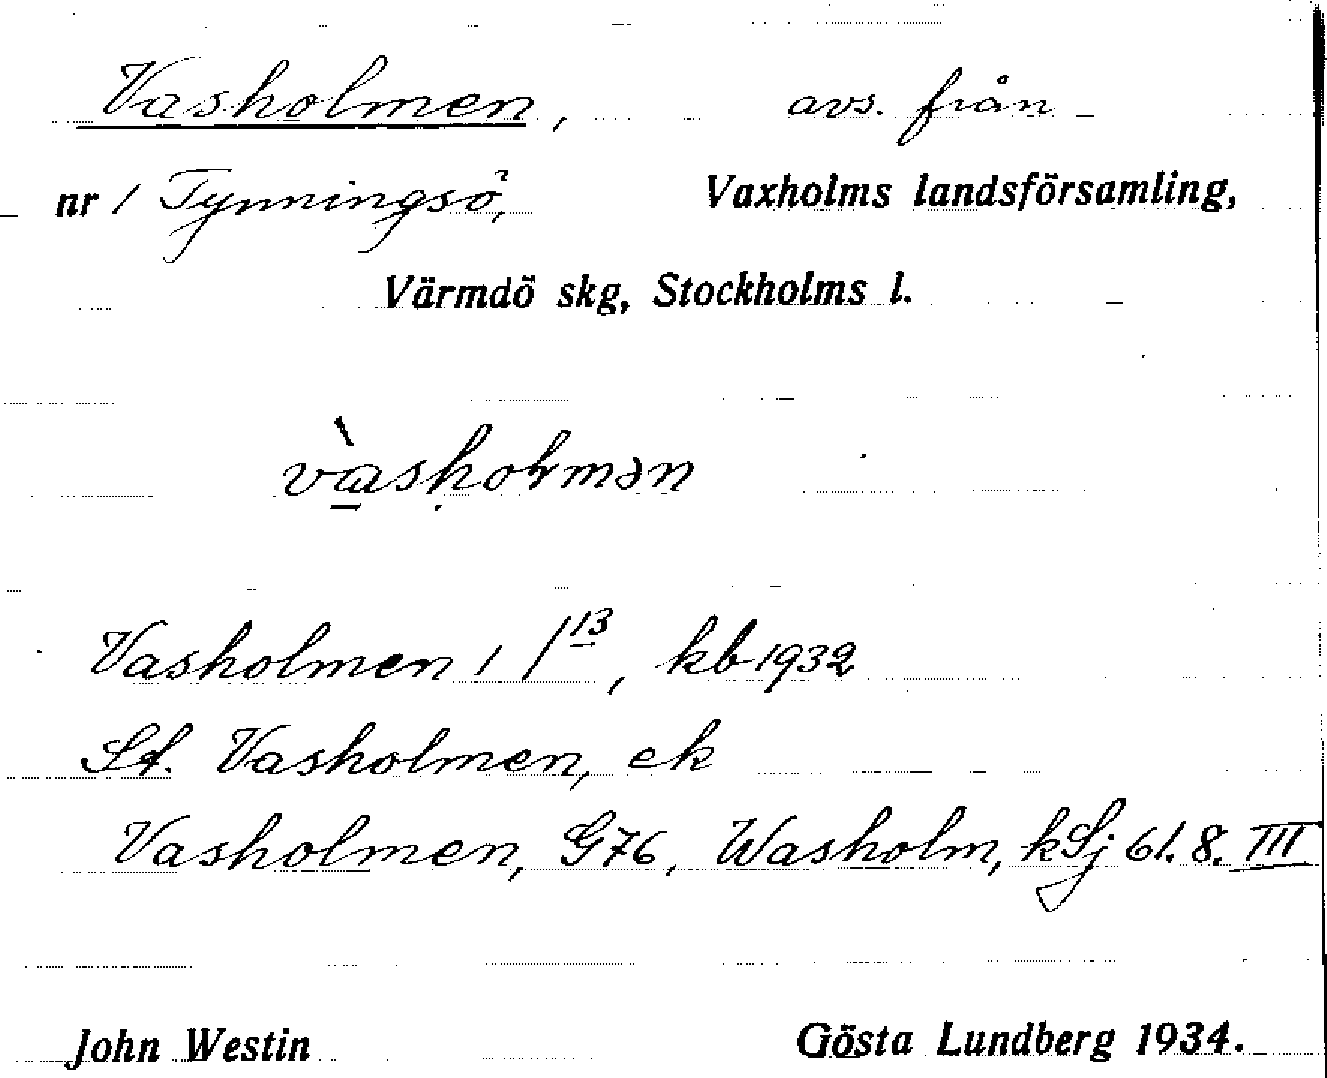 Vasholmen, avs. från
nr 1 Tynningsö, Vaxholms landsförsamling,
Värmdö skg, Stockholms l.
và̱sḥolmən
Vasholmen 1/13, kb 1932
St. Vasholmen, ek
Vasholmen, G76, Washolm, kSj 61.8. III
John Westin Gösta Lundberg 1934.